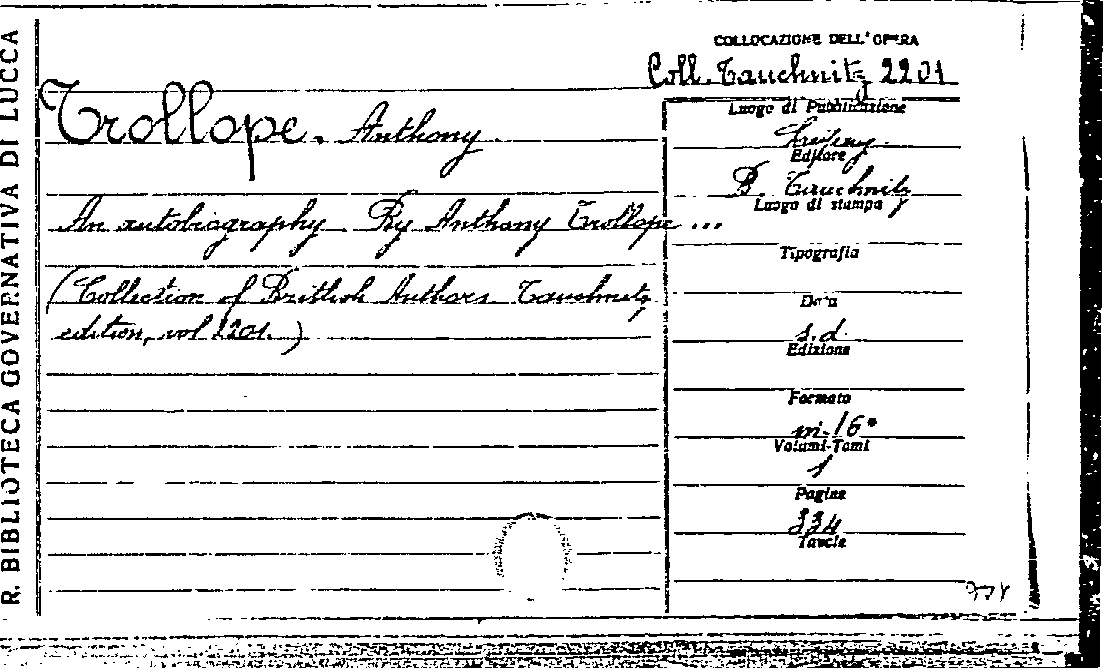 R. BIBLIOTECA GOVERNATIVA DI LUCCA
COLLOCAZIONE DELL'OPERA
Coll. Tauchnitz 2201
Trollope. Anthony.
An autobiography. By Anthony Trollope ...
(Collection of Brittish Authors. Tauchnitz
edition, vol 2201.)
Luogo di Pubblicazione
Leipzig
Editore
B. Tauchnitz
Luogo di stampa
Tipografia
Data
s.d.
Edizione
Formato
in-16°
Volumi-Tomi
1
Pagine
334
Tavole